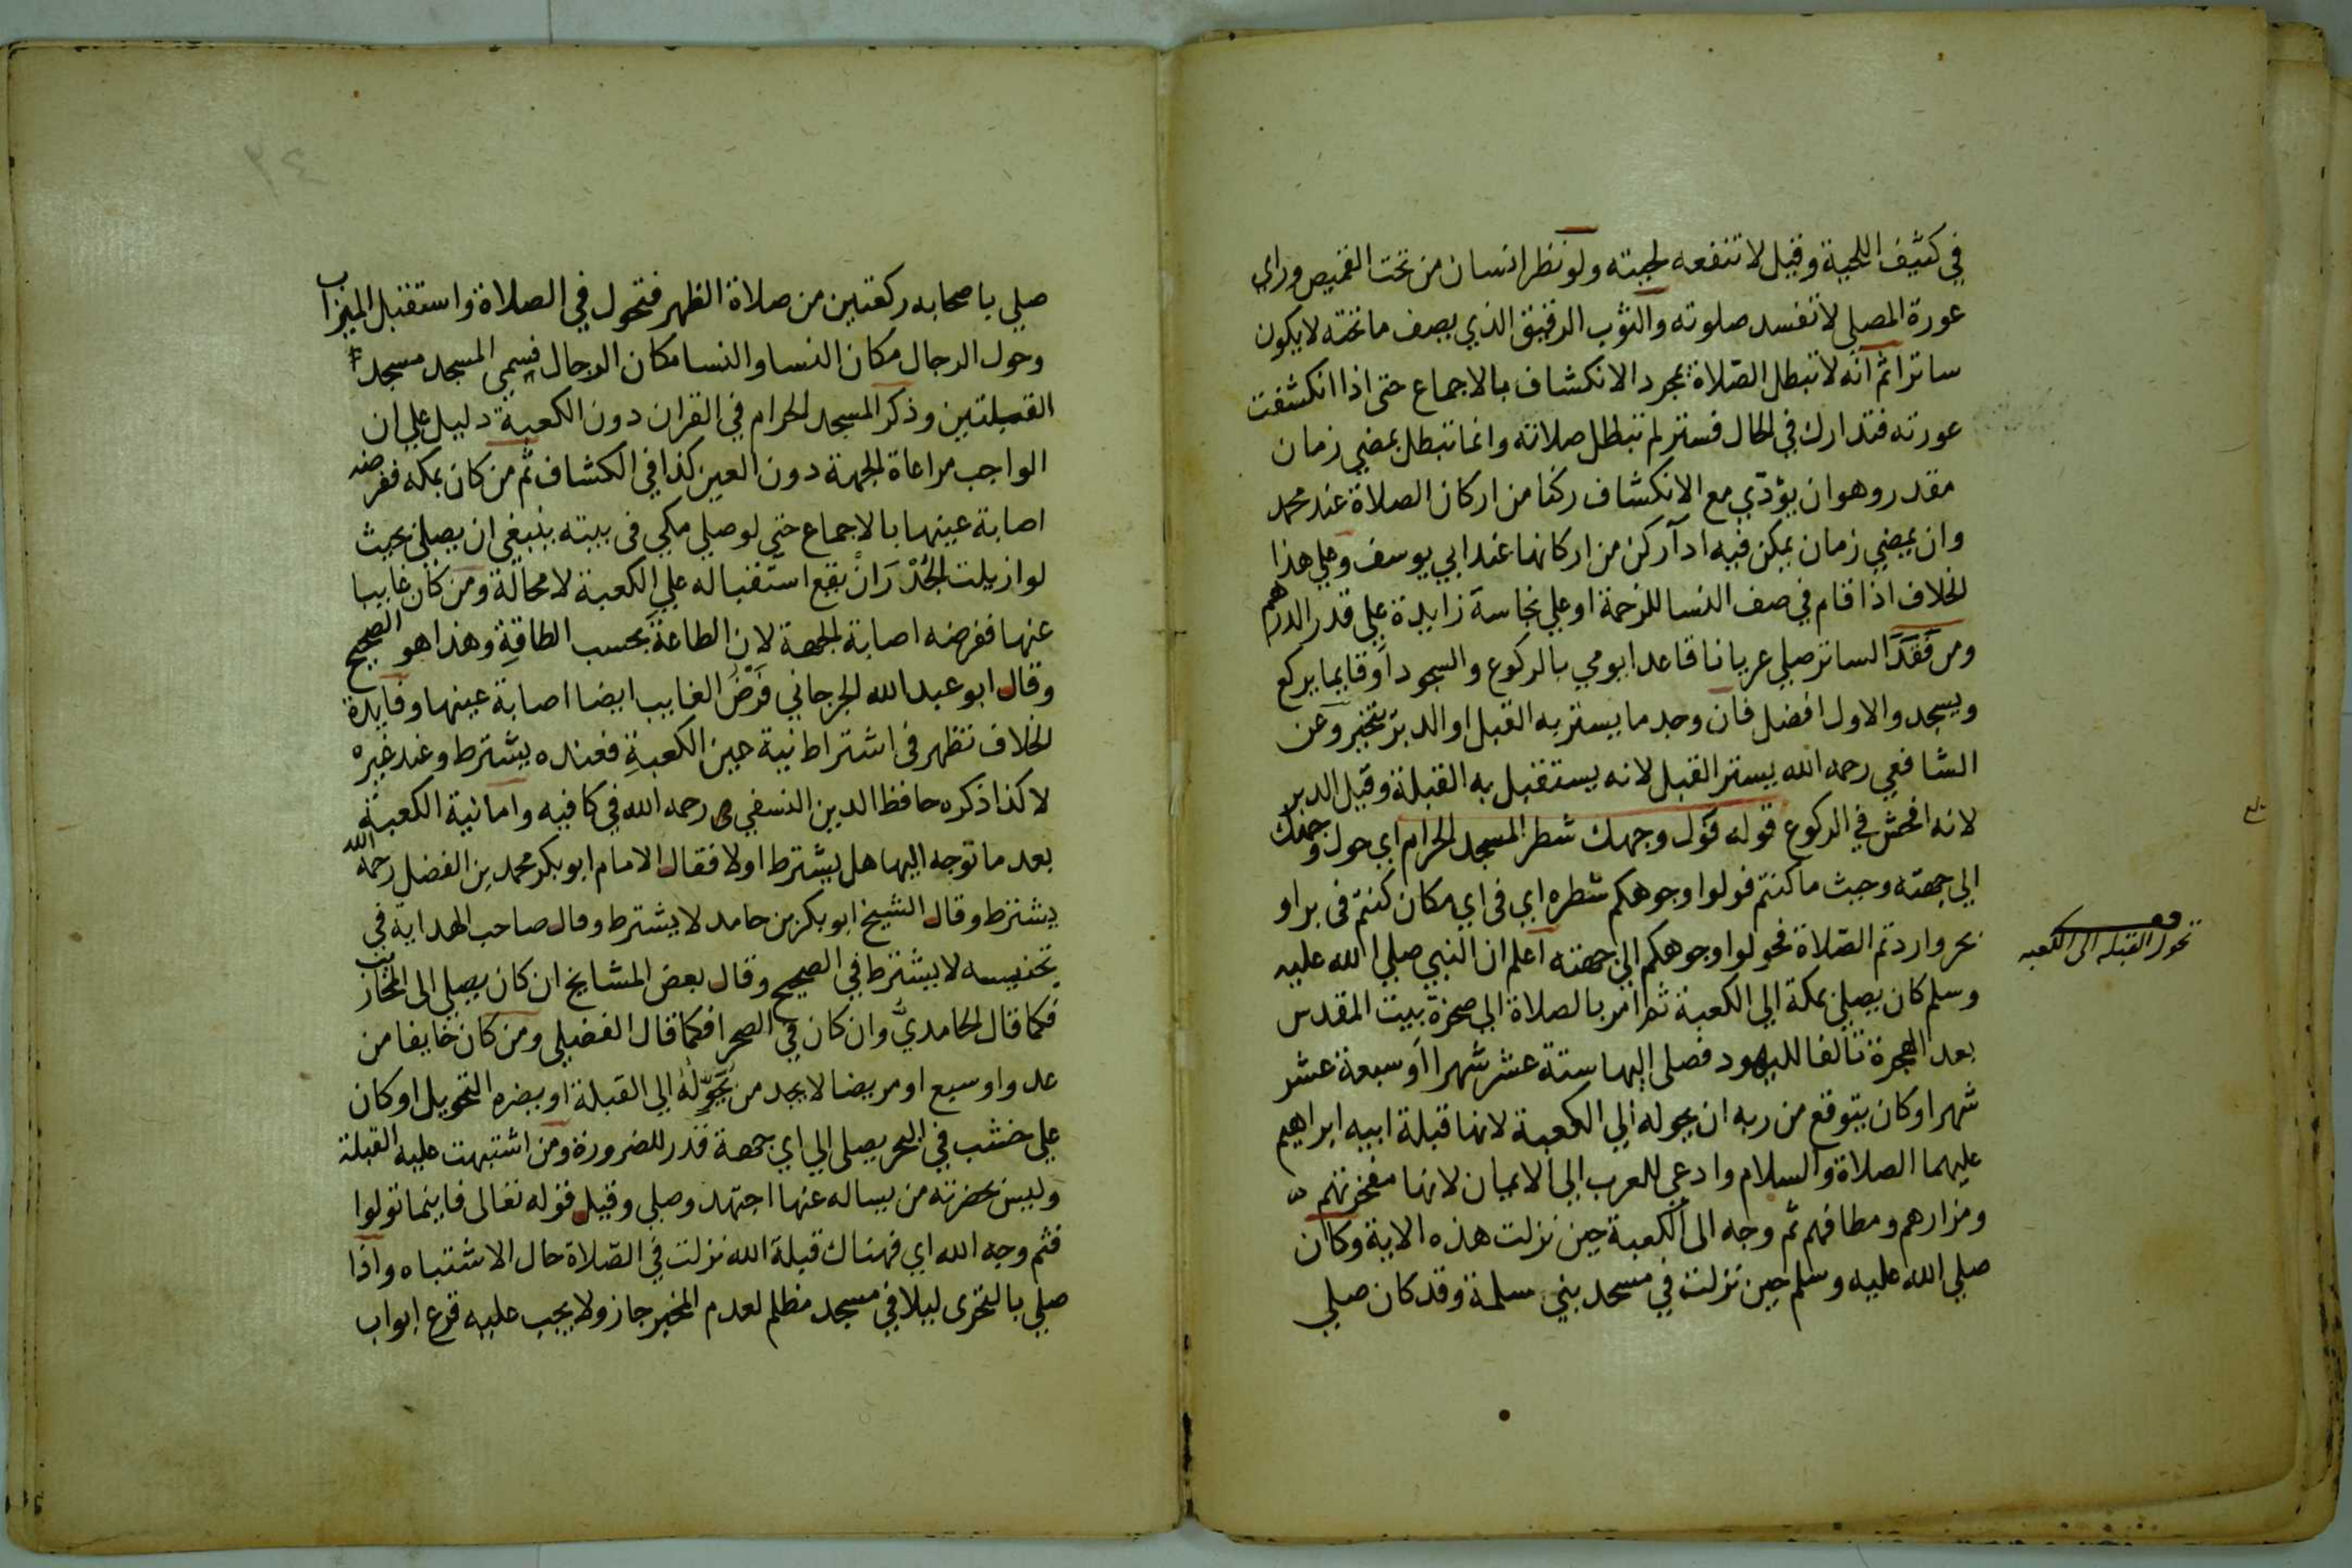 في كثيف اللحية وقيل لا تنفعه لحيته ولو نظر انسان من تحت القميص وراي
عورة المصلي لا تفسد صلوته والثوب الرقيق الذي يصف ما تحته لا يكون
ساترا ثم انه لا تبطل الصلاة بمجرد الانكشاف بالاجماع حتى اذا انكشفت
عورته فتدارك في الحال فستر لم تبطل صلاته وانما تبطل بمضي زمان
مقدر وهو ان يؤدّي مع الانكشاف ركنا من اركان الصلاة عند محمد
وان يمضي زمان يمكن فيه ادآ ركن من اركانها عند ابي يوسف وعلي هذا
الخلاف اذا قام في صف النسا للزحمة او علي نجاسة زايدة علي قدر الدرهم
ومن فَقَدَ الساتر صلي عريانا قاعدا يومي بالركوع والسجود او قايما يركع
ويسجد والاول افضل فان وجد ما يستر به القبل او الدبر يتخير وعن
الشافعي رحمه الله يستر القبل لانه يستقبل به القبلة وقيل الدبر
لانه افحش في الركوع قوله فول وجهك شطر المسجد الحرام اي حول وجهك
الي جهته وحيث ما كنتم فولوا وجوهكم شطره اي في اي مكان كنتم في بر او
بحر واردتم الصلاة فحولوا وجوهكم الي جهته اعلم ان النبي صلي الله عليه
تحول القبلة الى الكعبه
وسلم كان يصلي بمكة الي الكعبة ثم امر بالصلاة الي صخرة بيت المقدس
بعد الهجرة تالفا لليهود فصلي اليها ستة عشر شهرا او سبعة عشر
شهرا وكان يتوقع من ربه ان يحوله الي الكعبة لانها قبلة ابيه ابراهيم
عليهما الصلاة والسلام وادعي للعرب الي الايمان لانها مفخرتهم
ومزارهم ومطافهم ثم وجه الى الكعبة حين نزلت هذه الاية وكان
صلي الله عليه وسلم حين نزلت في مسجد بني سلمة وقد كان صلي
صلي باصحابه ركعتين من صلاة الظهر فتحول في الصلاة واستقبل الميزاب
وحول الرجال مكان النسا والنسا مكان الرجال فسمي المسجد مسجد
القبلتين وذكر المسجد الحرام في القران دون الكعبة دليل علي ان
الواجب مراعاة الجهة دون العين كذا في الكشاف ثم من كان بمكه ففرضه
اصابة عينها بالاجماع حتي لو صلي مكي في بيته ينبغي ان يصلي بحيث
لو ازيلت الجُدْرَان يقع استقباله علي الكعبة لا محالة ومن كان غايبا
عنها ففرضه اصابة الجهة لان الطاعة بحسب الطاقةِ وهذا هو الصحيح
وقال ابو عبد الله الجرجاني فَرْضُ الغايب ايضا اصابة عينها وفايدة
الخلاف تظهر في اشتراط نية عين الكعبةِ فعنده يشترط وعند غيره
لا كذا ذكره حافظ الدين النسفي رحمه الله في كافيه واما نية الكعبة
بعد ما توجه اليها هل يشترط اولا فقال الامام ابو بكر محمد بن الفضل رحمه الله
يشترط وقال الشيخ ابو بكر بن حامد لا يشترط وقال صاحب الهداية في
تجنيسه لا يشترط في الصحيح وقال بعض المشايخ ان كان يصلي الى المحاريب
فكما قال الحامديُّ وان كان في الصحرا فكما قال الفضيلي ومن كان خايفا من
عدو او سبع او مريضا لا يجد من يُحَوِّلُهُ الي القبلة او يضره التحويل او كان
علي خشب في البحر يصلي الي اي جهة قدر للضرورة ومن اشتبهت عليه القبلة
وليس بحضرته من يساله عنها اجتهد وصلي وقيل قوله تعالى فاينما تولوا
فثم وجه الله اي فهناك قبلة الله نزلت في الصلاة حال الاشتباه واذا
صلي بالتحرى ليلا في مسجد مظلم لعدم المخبر جاز ولا يجب عليه قرع ابواب